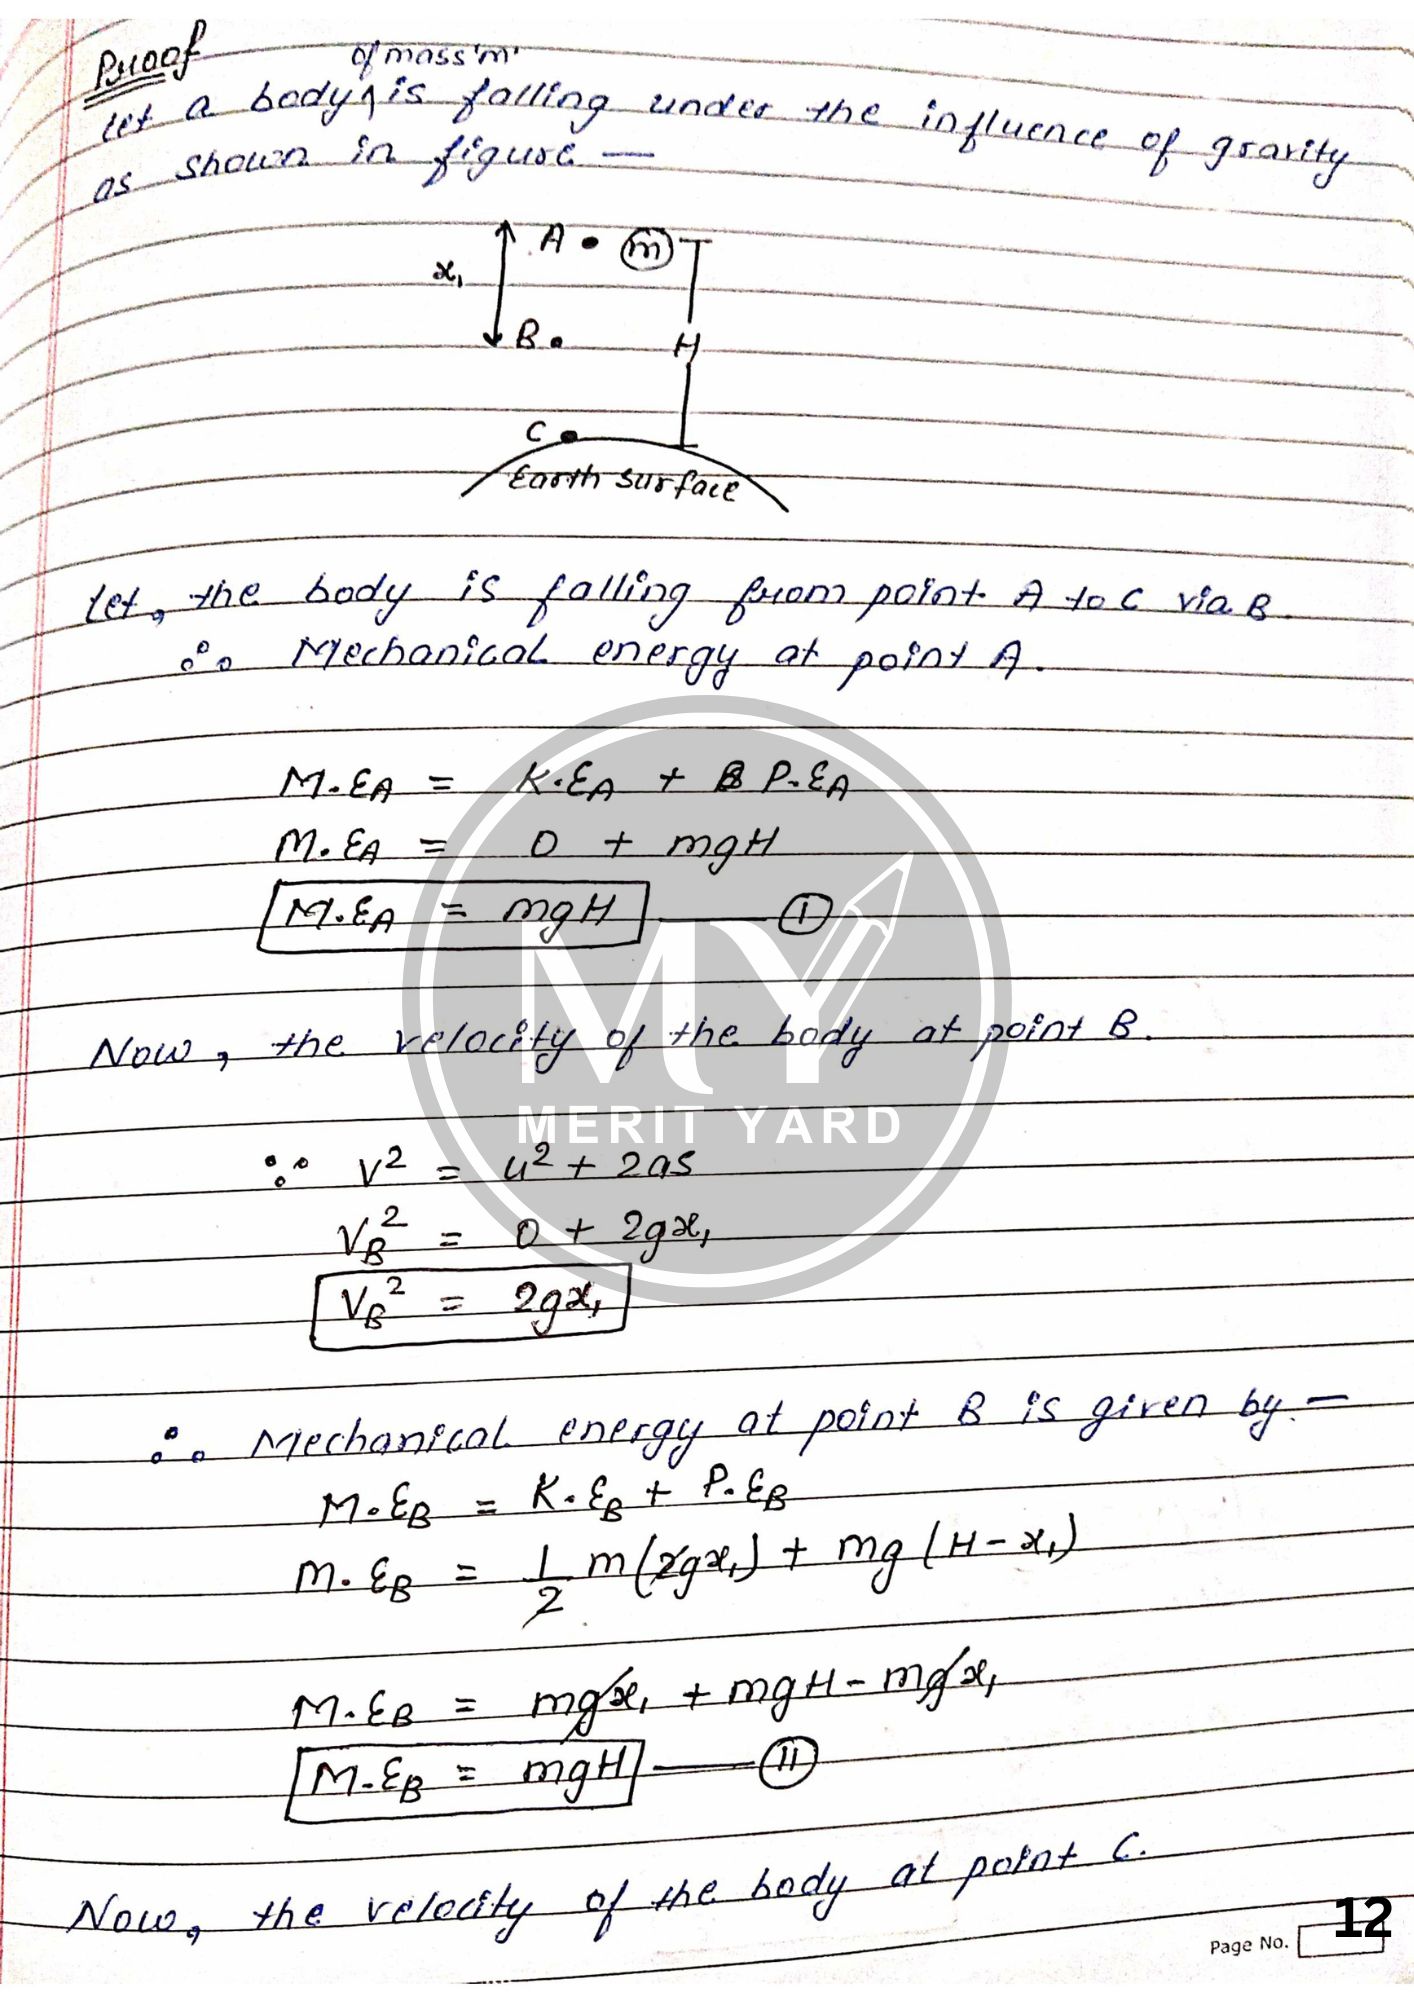 Proof
of mass 'm'
Let a body ^ is falling under the influence of gravity
as shown in figure —
A • m
x₁
B •
H
C •
Earth Surface
Let, the body is falling from point A to C via B.
∴ Mechanical energy at point A.
M.E_A = K.E_A + P.E_A
M.E_A = 0 + mgH
M.E_A = mgH —— I
MY
Now, the velocity of the body at point B.
MERIT YARD
∵ V² = u² + 2as
V_B² = 0 + 2gx₁
V_B² = 2gx₁
∴ Mechanical energy at point B is given by. —
M.E_B = K.E_B + P.E_B
M.E_B = 1/2 m(2gx₁) + mg(H - x₁)
M.E_B = mgx₁ + mgH - mgx₁
M.E_B = mgH —— II
Now, the velocity of the body at point C.
12
Page No.